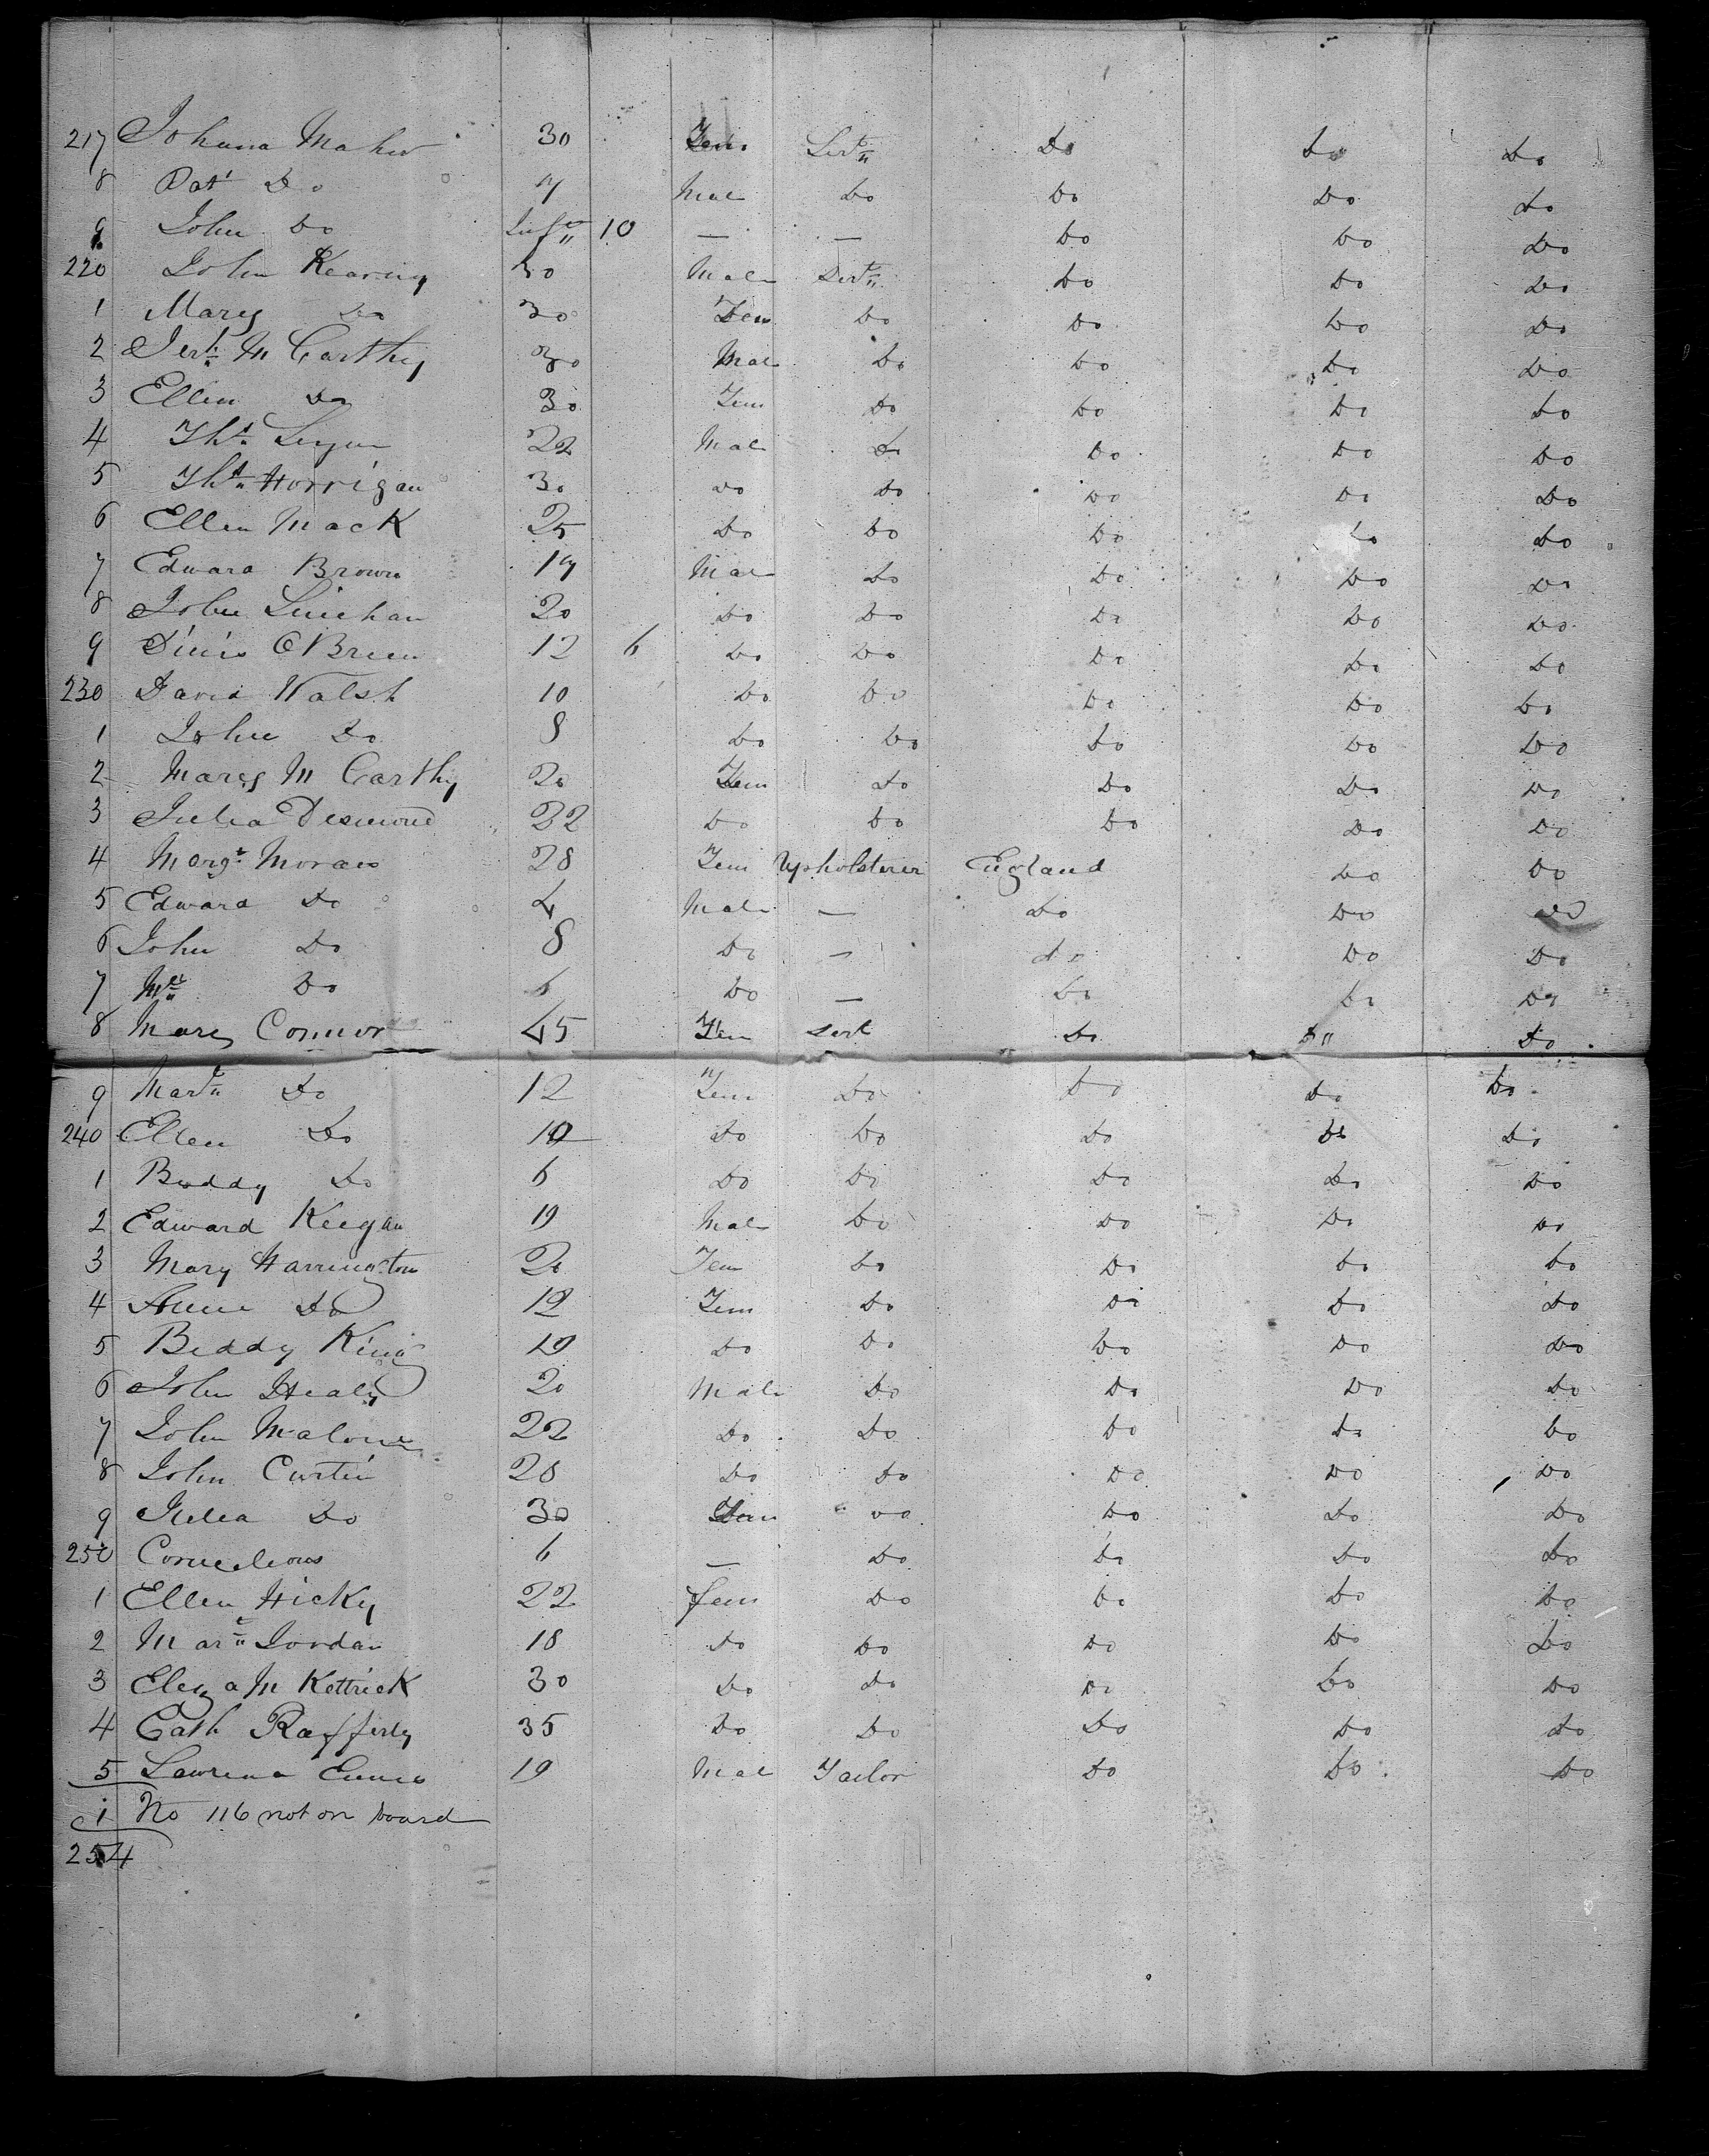 217 Johana Maher 30 Fem Servt Do Do Do
8 Pat Do 7 Male Do Do Do Do
9 John Do Inft 10 — — Do Do Do
220 John Kearing 30 Male Servt Do Do Do
1 Mary Do 30 Fem Do Do Do Do
2 Jerh McCarthy 30 Male Do Do Do Do
3 Ellen Do 30 Fem Do Do Do Do
4 Ths 22 Male Do Do Do Do
5 Ths Horrigan 30 Do Do Do Do Do
6 Ellen Mack 25 Do Do Do Do Do
7 Edward Brown 17 Male Do Do Do Do
8 John Linehan 20 Do Do Do Do Do
9 Dinis OBrien 12 6 Do Do Do Do Do
230 David Walsh 10 Do Do Do Do Do
1 John Do 8 Do Do Do Do Do
2 Mary McCarthy 20 Fem Do Do Do Do
3 Julia Desmond 22 Do Do Do Do Do
4 Margt Moran 28 Fem Upholsterer England Do Do
5 Edward Do 4 Male — Do Do Do
6 John Do 8 Do — Do Do Do
7 Do 6 Do — Do Do Do
8 Mary Connor 45 Fem Servt Do Do Do
9 Mart Do 12 Fem Do Do Do Do
240 Ellen Do 10 Do Do Do Do Do
1 Biddy Do 6 Do Do Do Do Do
2 Edward Keegan 19 Male Do Do Do Do
3 Mary Harrington 20 Fem Do Do Do Do
4 Anne Do 12 Fem Do Do Do Do
5 Biddy King 19 Do Do Do Do Do
6 John Healy 20 Male Do Do Do Do
7 John Malone 22 Do Do Do Do Do
8 John Curtin 28 Do Do Do Do Do
9 Julia Do 30 Fem Do Do Do Do
250 Cornelious 6 — Do Do Do Do
1 Ellen Hicky 22 fem Do Do Do Do
2 Mart Jordan 18 Do Do Do Do Do
3 Eliza McKettrick 30 Do Do Do Do Do
4 Cath Rafferty 35 Do Do Do Do Do
5 Lawrence Ennis 19 Male Tailor Do Do Do
1 No 116 not on board
254